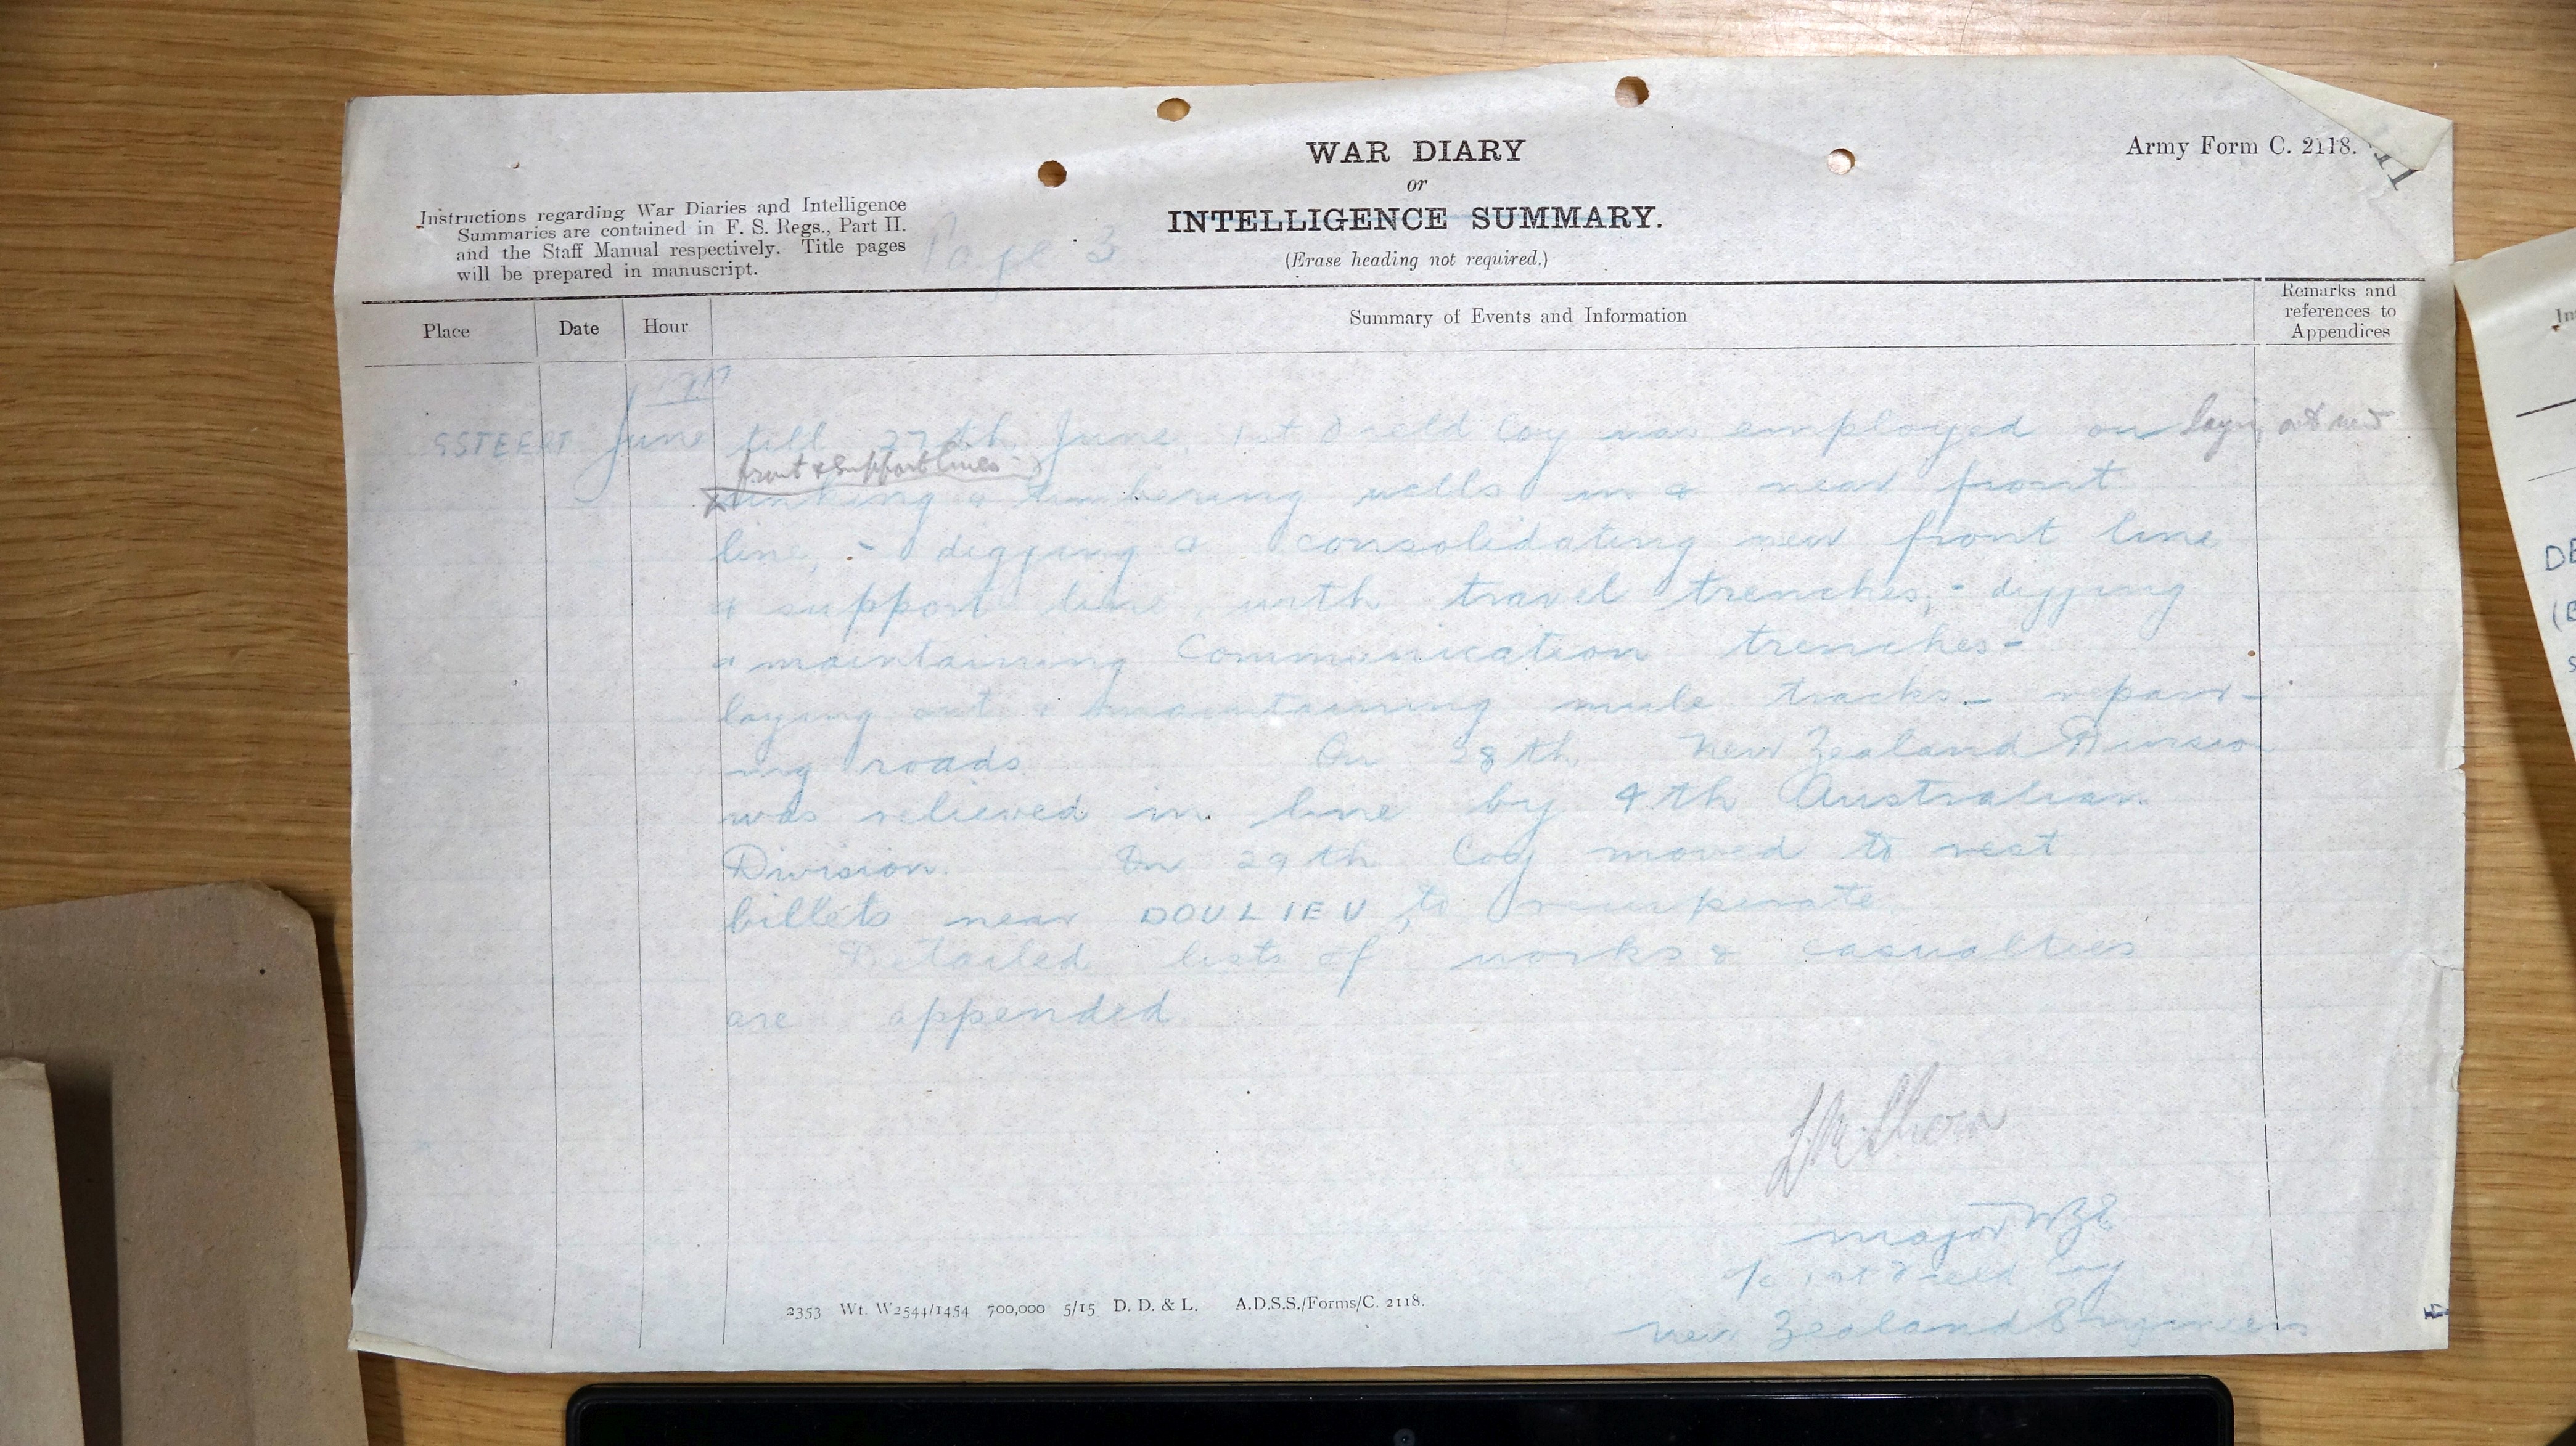 WAR DIARY
or
INTELLIGENCE SUMMARY.
(Erase heading not required.)
Army Form C. 2118.
Instructions regarding War Diaries and Intelligence
Summaries are contained in F. S. Regs., Part II.
and the Staff Manual respectively. Title pages
will be prepared in manuscript.
Page 3
Place
Date
Hour
Summary of Events and Information
Remarks and
references to
Appendices
1917
SSTEERT June till 27th June 1st Field Coy was employed on laying out new
front & support lines
sinking & timbering wells in & near front
line, - digging & consolidating new front line
& support line, with travel trenches, - digging
& maintaining Communication trenches -
laying out & maintaining mule tracks - repair-
ing roads On 28th New Zealand Division
was relieved in line by 4th Australian
Division. On 29th Coy moved to rest
billets near DOULIEU, to recuperate
Detailed lists of works & casualties
are appended
Major NZE
o/c 1st Field Coy
New Zealand Engineers
2353 Wt. W2544/1454 700,000 5/15 D. D. & L. A.D.S.S./Forms/C. 2118.